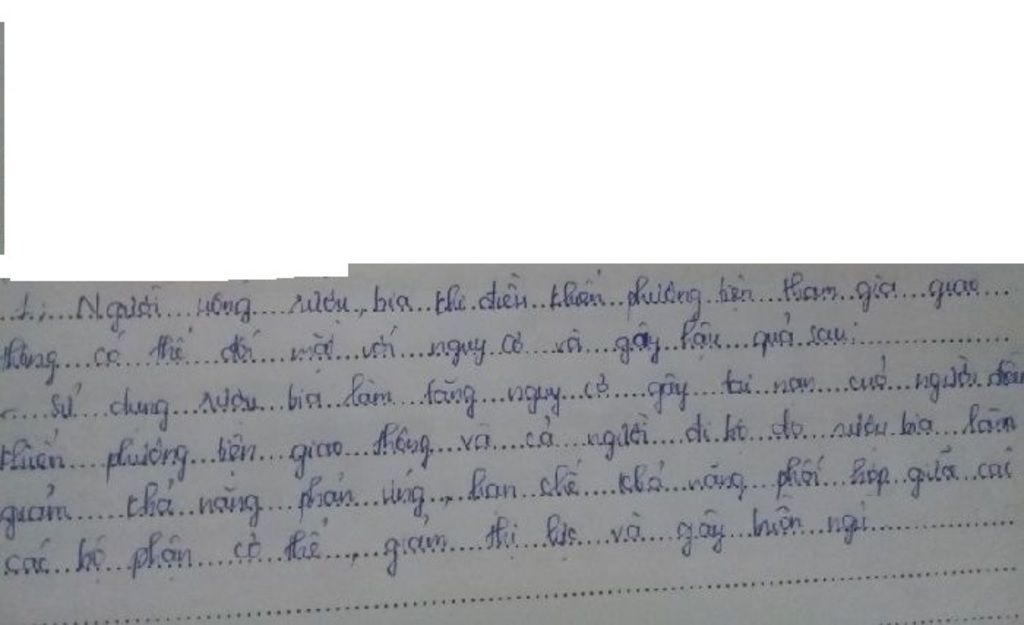 1. Người uống rượu, bia khi điền khiển phương tiện tham gia giao
thông có thể đối mặt với nguy cơ và gây hậu quả sau:
- Sử dung rượu bia làm tăng nguy cơ gây tai nạn cuả người điều
khiển phương tiện giao thông và cả người đi bộ do rượu bia làm
giảm khả năng phản ứng, hạn chế khả năng phối hợp giữa các
các bộ phận cơ thể, giảm thị lực và gây buồn ngủ